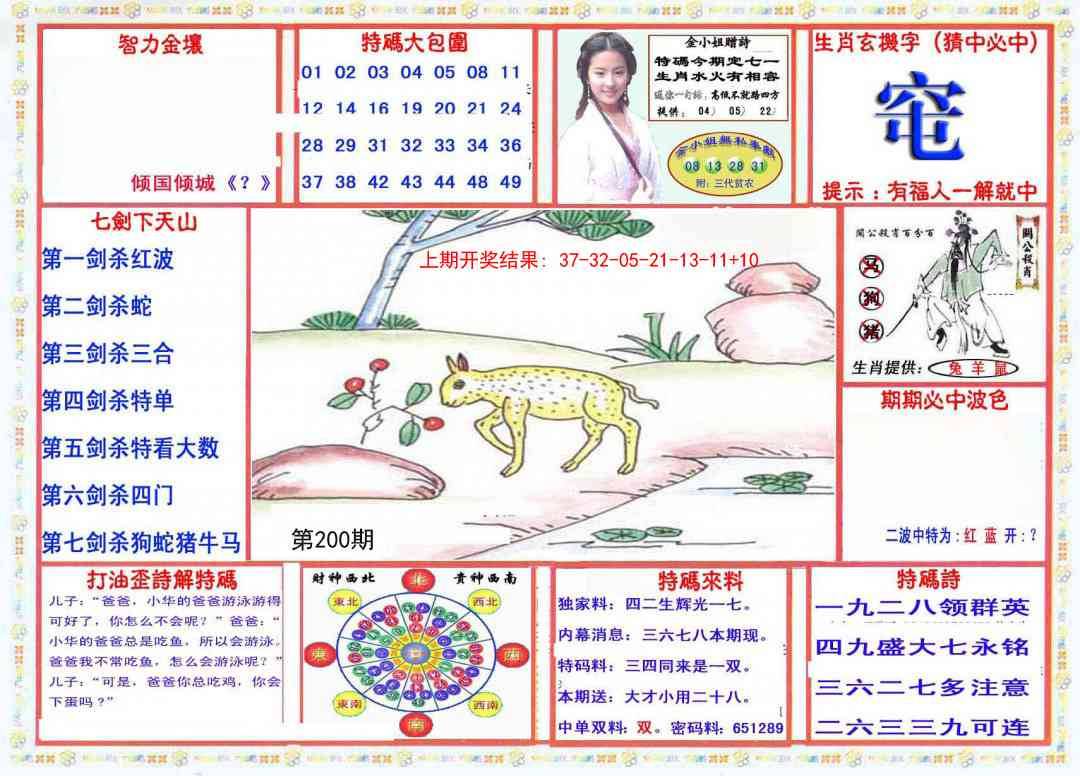 智力金壤
倾国倾城《?》
特碼大包圍
01 02 03 04 05 08 11
12 14 16 19 20 21 24
28 29 31 32 33 34 36
37 38 42 43 44 48 49
金小姐赠詩
特碼今期定七一
生肖水火有相容
高低不就踏四方
提供: 04） 05） 22）
金小姐無私奉獻
08 13 28 31
附: 三代贫农
生肖玄機字（猜中必中）
窀
提示：有福人一解就中
七劍下天山
第一剑杀红波
第二剑杀蛇
第三剑杀三合
第四剑杀特单
第五剑杀特看大数
第六剑杀四门
第七剑杀狗蛇猪牛马
上期开奖结果: 37-32-05-21-13-11+10
第200期
關公殺肖百分百
關公殺肖
马
狗
猪
生肖提供: 兔 羊 鼠
期期必中波色
二波中特为: 红 蓝 开: ?
打油歪詩解特碼
儿子: “爸爸, 小华的爸爸游泳游得
可好了, 你怎么不会呢? ” 爸爸: “
小华的爸爸总是吃鱼, 所以会游泳。
爸爸我不常吃鱼, 怎么会游泳呢? ”
儿子: “可是, 爸爸你总吃鸡, 你会
下蛋吗? ”
财神西北 貴神西南
北
東北 西北
東 西
東南 西南
南
特碼來料
独家料: 四二生辉光一七。
内幕消息: 三六七八本期现。
特码料: 三四同来是一双。
本期送: 大才小用二十八。
中单双料: 双。 密码料: 651289
特碼詩
一九二八领群英
四九盛大七永铭
三六二七多注意
二六三三九可连